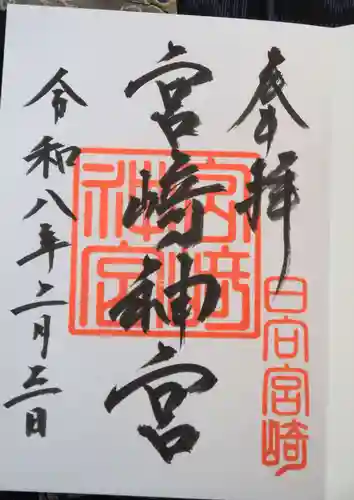 奉拝
日向宮崎
宮崎神宮
宮崎神宮
令和八年二月三日